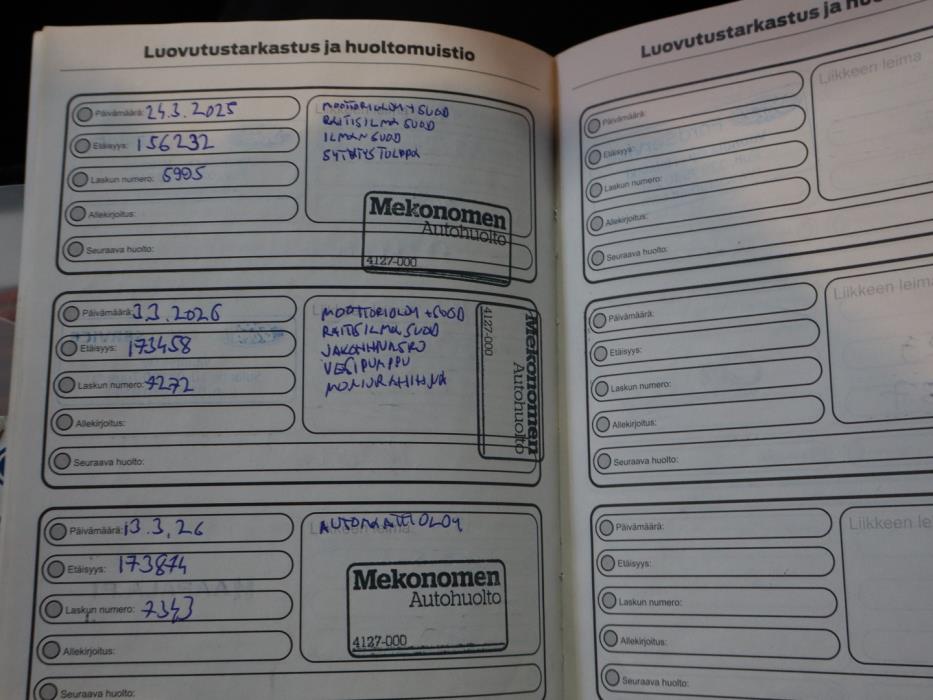 Luovutustarkastus ja huoltomuistio
Päivämäärä: 24.3.2025
Etäisyys: 156232
Laskun numero: 5995
Allekirjoitus:
Seuraava huolto:
MOOTTORIÖLJY + SUOD
RAITISILMA SUOD
ILMAN SUOD
SYTYTYSTULPPA
Mekonomen
Autohuolto
4127-000
Päivämäärä: 3.3.2026
Etäisyys: 173458
Laskun numero: 7272
Allekirjoitus:
Seuraava huolto:
MOOTTORIÖLJY + SUOD
RAITISILMA SUOD
JAKOHIHNASRJ
VESIPUMPPU
MONIURAHIHNA
Mekonomen
Autohuolto
4127-000
Päivämäärä: 13.3.26
Etäisyys: 173874
Laskun numero: 7343
Allekirjoitus:
Seuraava huolto:
AUTOMAATTIÖLJY
Mekonomen
Autohuolto
4127-000
Luovutustarkastus ja
Päivämäärä:
Etäisyys:
Laskun numero:
Allekirjoitus:
Seuraava huolto:
Liikkeen leima
Päivämäärä:
Etäisyys:
Laskun numero:
Allekirjoitus:
Seuraava huolto:
Liikkeen leima
Päivämäärä:
Etäisyys:
Laskun numero:
Allekirjoitus:
Seuraava huolto:
Liikkeen le